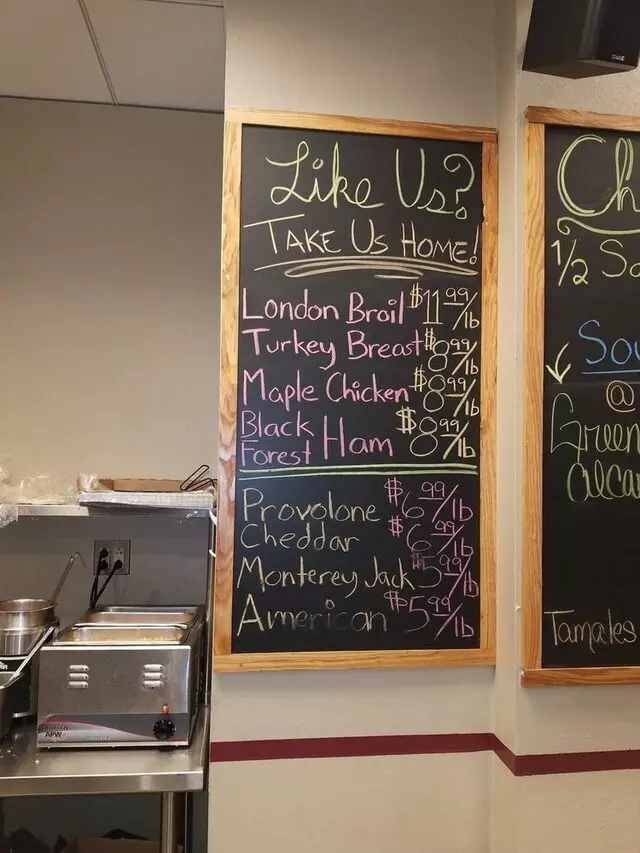 Like Us?
TAKE US HOME!
London Broil $11.99/lb
Turkey Breast $8.99/lb
Maple Chicken $8.99/lb
Black Forest Ham $8.99/lb
Provolone $6.99/lb
Cheddar $6.99/lb
Monterey Jack $5.99/lb
American $5.99/lb
Ch
1/2 Sa
Sou
@
Green
Tamales
APW